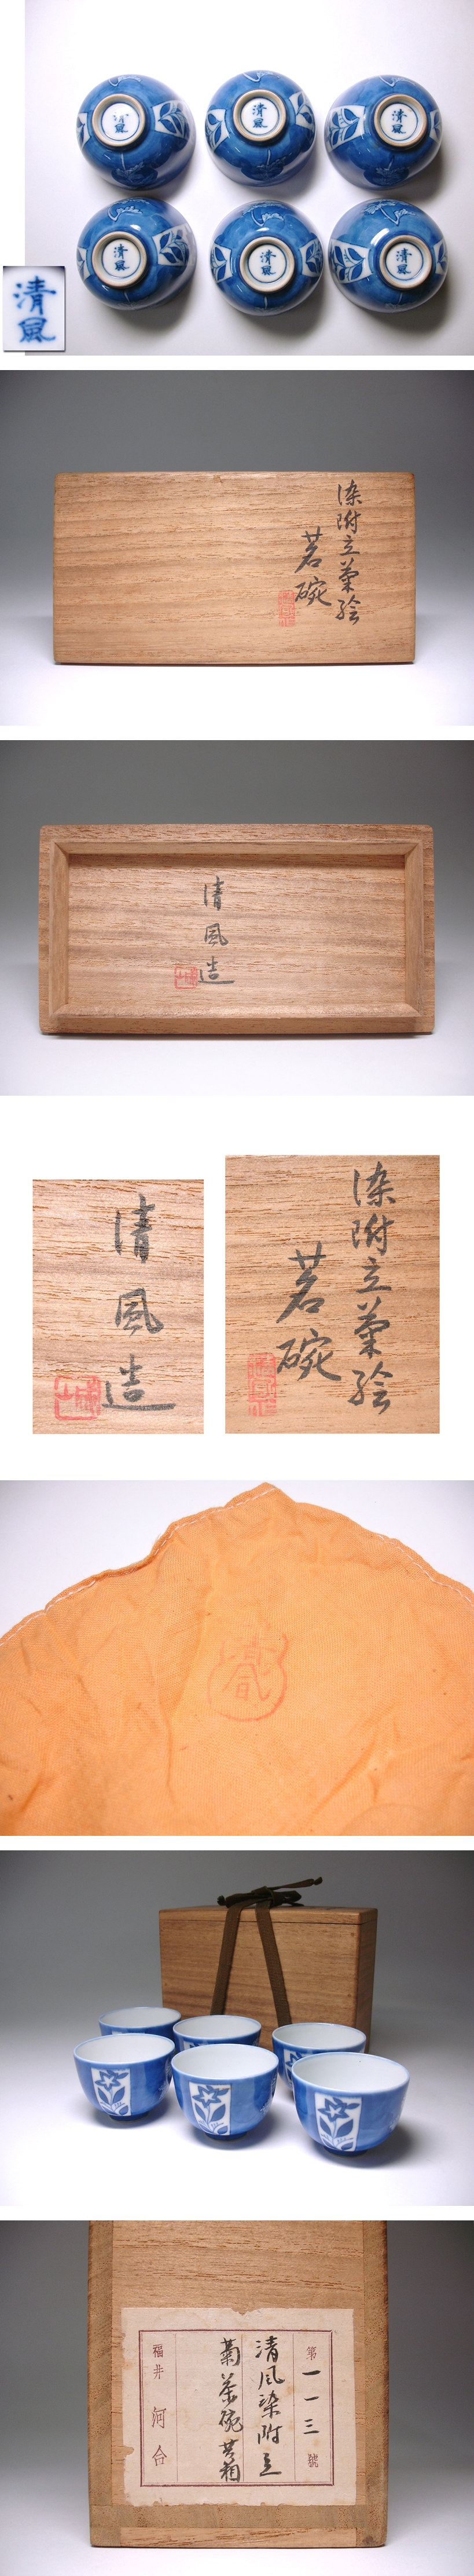 清風
清風
清風
清風
清風
清風
清風
染附立菊絵
茗碗
清風造
清風造
染附立菊絵
茗碗
第一一三號
清風染附立
菊茶碗共箱
福井 河合